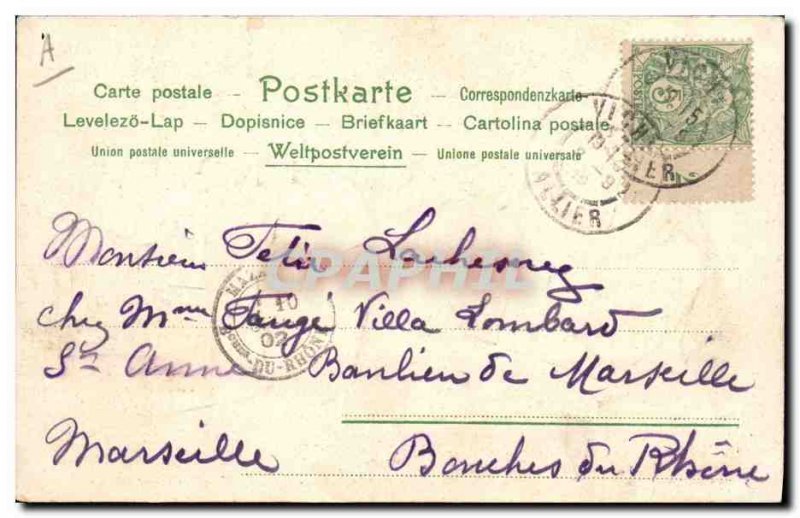 A
Carte postale – Postkarte – Correspondenzkarte
Levelezö-Lap – Dopisnice – Briefkaart – Cartolina postale
Union postale universelle – Weltpostverein – Unione postale universale
Monsieur Felix
chez Mme Fangé Villa Lombard
Ste Anne Banlieu de Marseille
Marseille Bouches du Rhône
CPAPHIL
10
02
DU-RHÔNE
VICHY
ALLIER